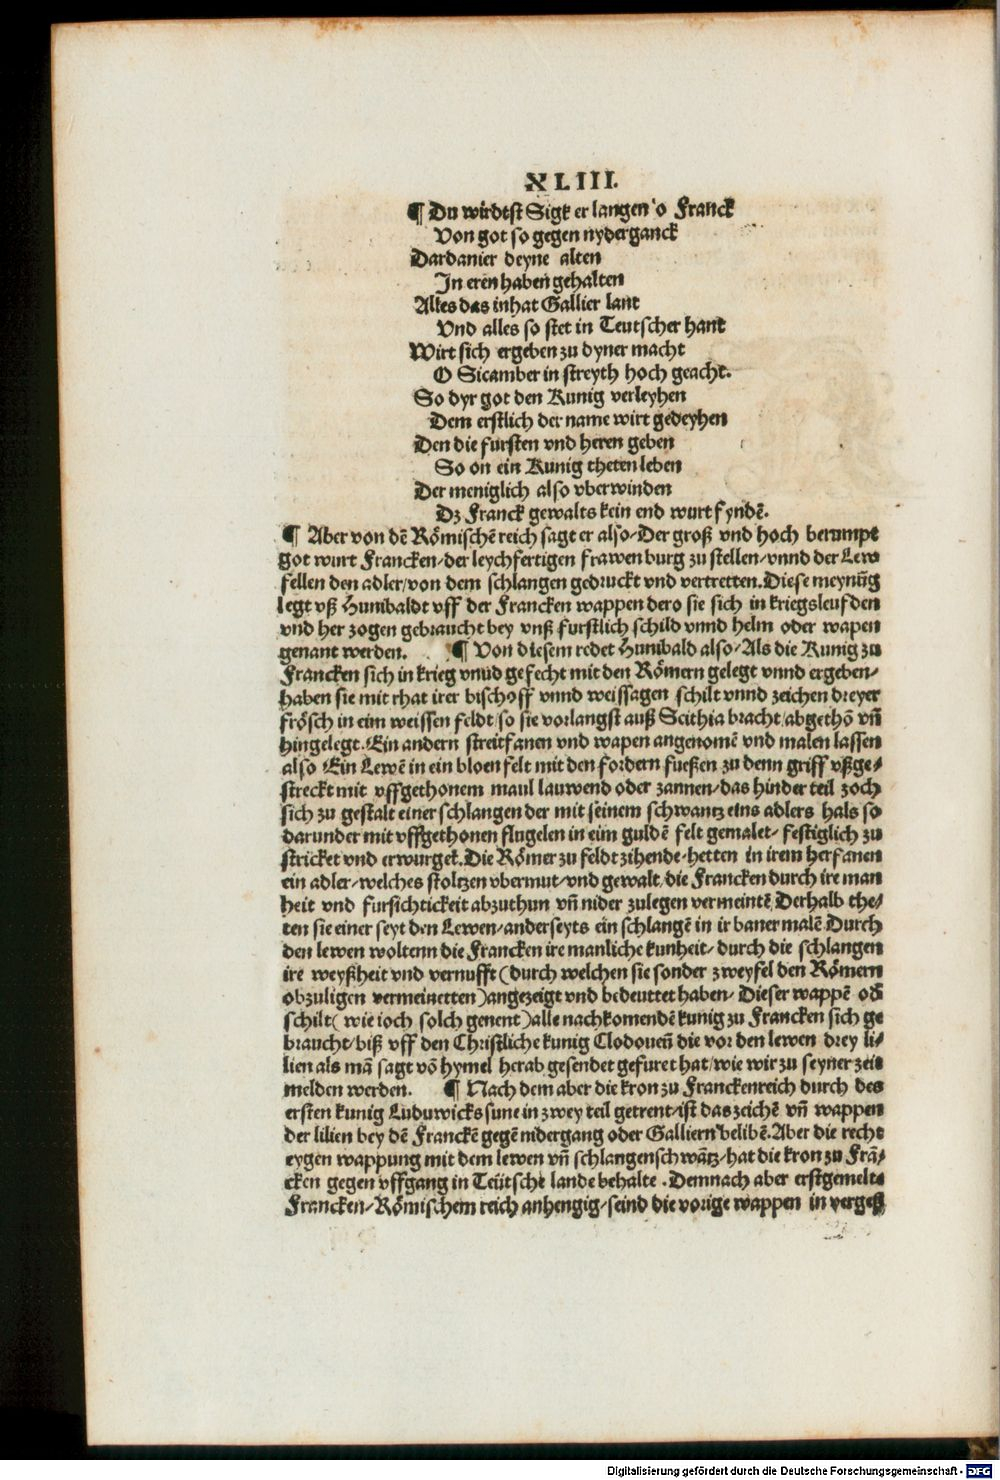 XLIII.
¶ Du wirdtst Sigk er langen o Franck
Von got so gegen nyderganck
Dardanier deyne alten
In eren haben gehalten
Alles das inhat Gallier lant
Vnd alles so stet in Teutscher hant
Wirt sich ergeben zu dyner macht
O Sicamber in streyth hoch geacht.
So dyr got den Kunig verleyhen
Dem erstlich der name wirt gedeyhen
Den die fursten vnd heren geben
So on ein Kunig theten leben
Der meniglich also vberwinden
Dz Franck gewalts kein end wurt fyndē.
¶ Aber von dē Römischē reich sagt er also/Der groß vnd hoch berumpt
got wurt Francken/der leychfertigen frawen burg zu stellen/vnnd der Lew
fellen den adler/von dem schlangen gedruckt vnd vertretten. Diese meynūg
legt vß Hunibaldt vff der Francken wappen dero sie sich in kriegsleufden
vnd her zogen gebraucht bey vnß furstlich schild vnnd helm oder wapen
genant werden. ¶ Von diesem redet Hunibald also/Als die Kunig zu
Francken sich in krieg vnud gefecht mit den Römern gelegt vnnd ergeben/
haben sie mit rhat irer bischoff vnnd weissagen schilt vnnd zeichen dreyer
frösch in eim weissen feldt/so sie vorlangst auß Scithia bracht/abgethō vn̄
hingelegt. Ein andern streitfanen vnd wapen angenomē vnd malen lassen
also Ein Lewē in ein bloen felt mit den fordern fueßen zu denn griff vßge/
streckt mit vffgethonem maul lauwend oder zannen/das hinder teil zoch
sich zu gestalt einer schlangen der mit seinem schwantz eins adlers hals so
darunder mit vffgethonen flugelen in eim guldē felt gemalet/ festiglich zu
stricket vnd erwurget. Die Römer zu feldt zihende/hetten in irem herfanen
ein adler/welches stoltzen vbermut/vnd gewalt/die Francken durch ire man
heit vnd fursichtickeit abzuthun vn̄ nider zulegen vermeintē Derhalb the/
ten sie einer seyt den Lewen/anderseyts ein schlangē in ir baner malē Durch
den lewen woltenn die Francken ire manliche kunheit/ durch die schlangen
ire weyßheit vnd vernufft (durch welchen sie sonder zweyfel den Römern
obzuligen vermeinetten) angezeigt vnd bedeuttet haben/ Dieser wappē od̄
schilt (wie ioch solch genent) alle nachkomendē kunig zu Francken sich ge
braucht/biß vff den Christliche kunig Clodoueū die vor den lewen drey li/
lien als mā sagt vō hymel herab gesendet gefuret hat/wie wir zu seyner zeit
melden werden. ¶ Nach dem aber die kron zu Franckenreich durch des
ersten kunig Luduwicks sune in zwey teil getrent/ist das zeichē vn̄ wappen
der lilien bey dē Franckē gegē nidergang oder Galliern belibē. Aber die recht
eygen wappung mit dem lewen vn̄ schlangenschwātz/hat die kron zu Frā/
cken gegen vffgang in Teütsche lande behalte. Demnach aber erstgemelte
Francken/Römischem reich anhengig/seind die vorige wappen in vergeß
Digitalisierung gefördert durch die Deutsche Forschungsgemeinschaft - DFG